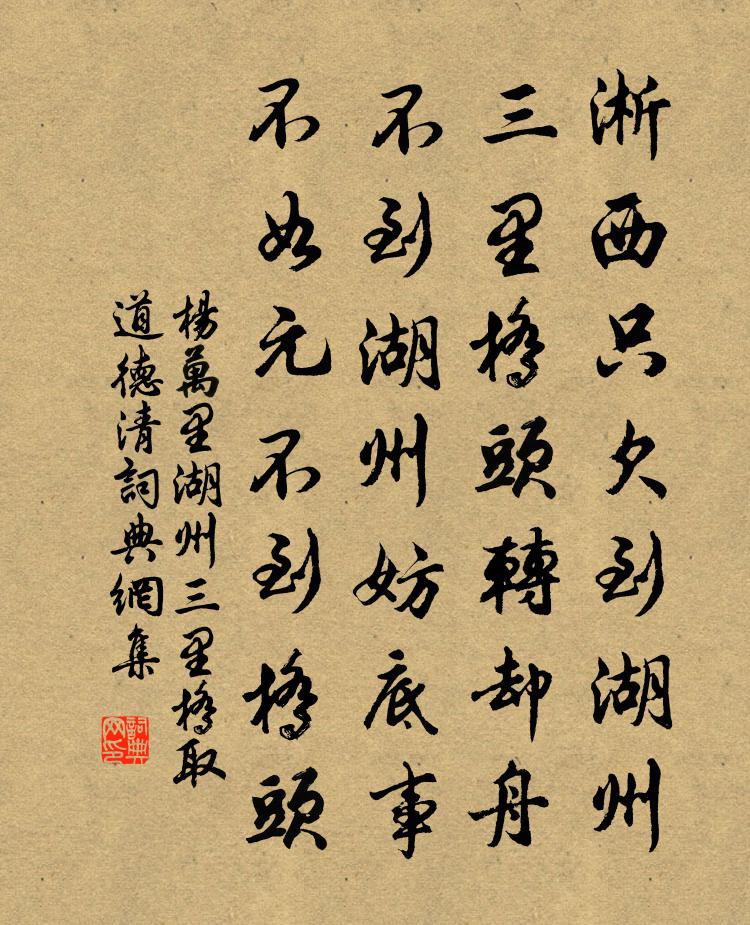 淅西只欠到湖州
三里橋頭轉却舟
不到湖州妨底事
不如元不到橋頭
楊萬里湖州三里橋取
道德清詞典網集
詞典网印